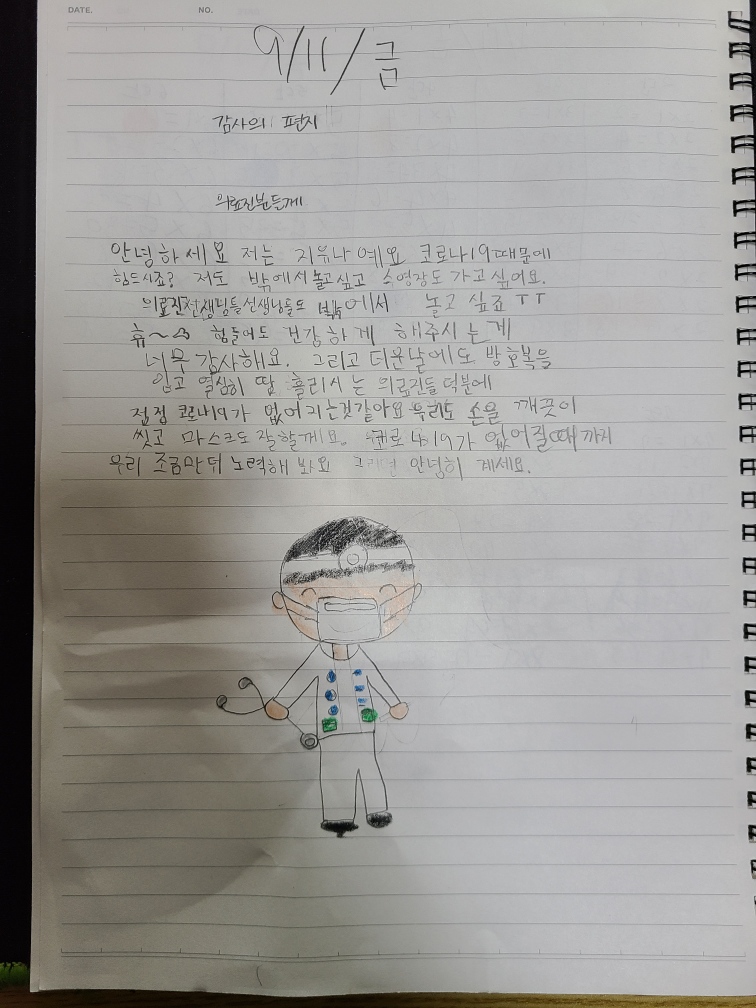 DATE.
NO.
9/11/금
감사의 편지
의료진분들께
안녕하세요 저는 지유나예요 코로나19때문에
힘드시죠? 저도 밖에서놀고싶고 수영장도가고싶어요.
의료진선생님들선생님들도 밖에서 놀고 싶죠 ㅜㅜ
휴~ 힘들어도 건강하게 해주시는게
너무 감사해요. 그리고 더운날에도 방호복을
입고 열심히 땀 흘리시는 의료진들 덕분에
점점 코로나19가 없어지는것같아요 우리도 손을 깨끗이
씻고 마스크도 잘할께요. 코로나19가 없어질때까지
우리 조금만더 노력해 봐요 그러면 안녕히 계세요.